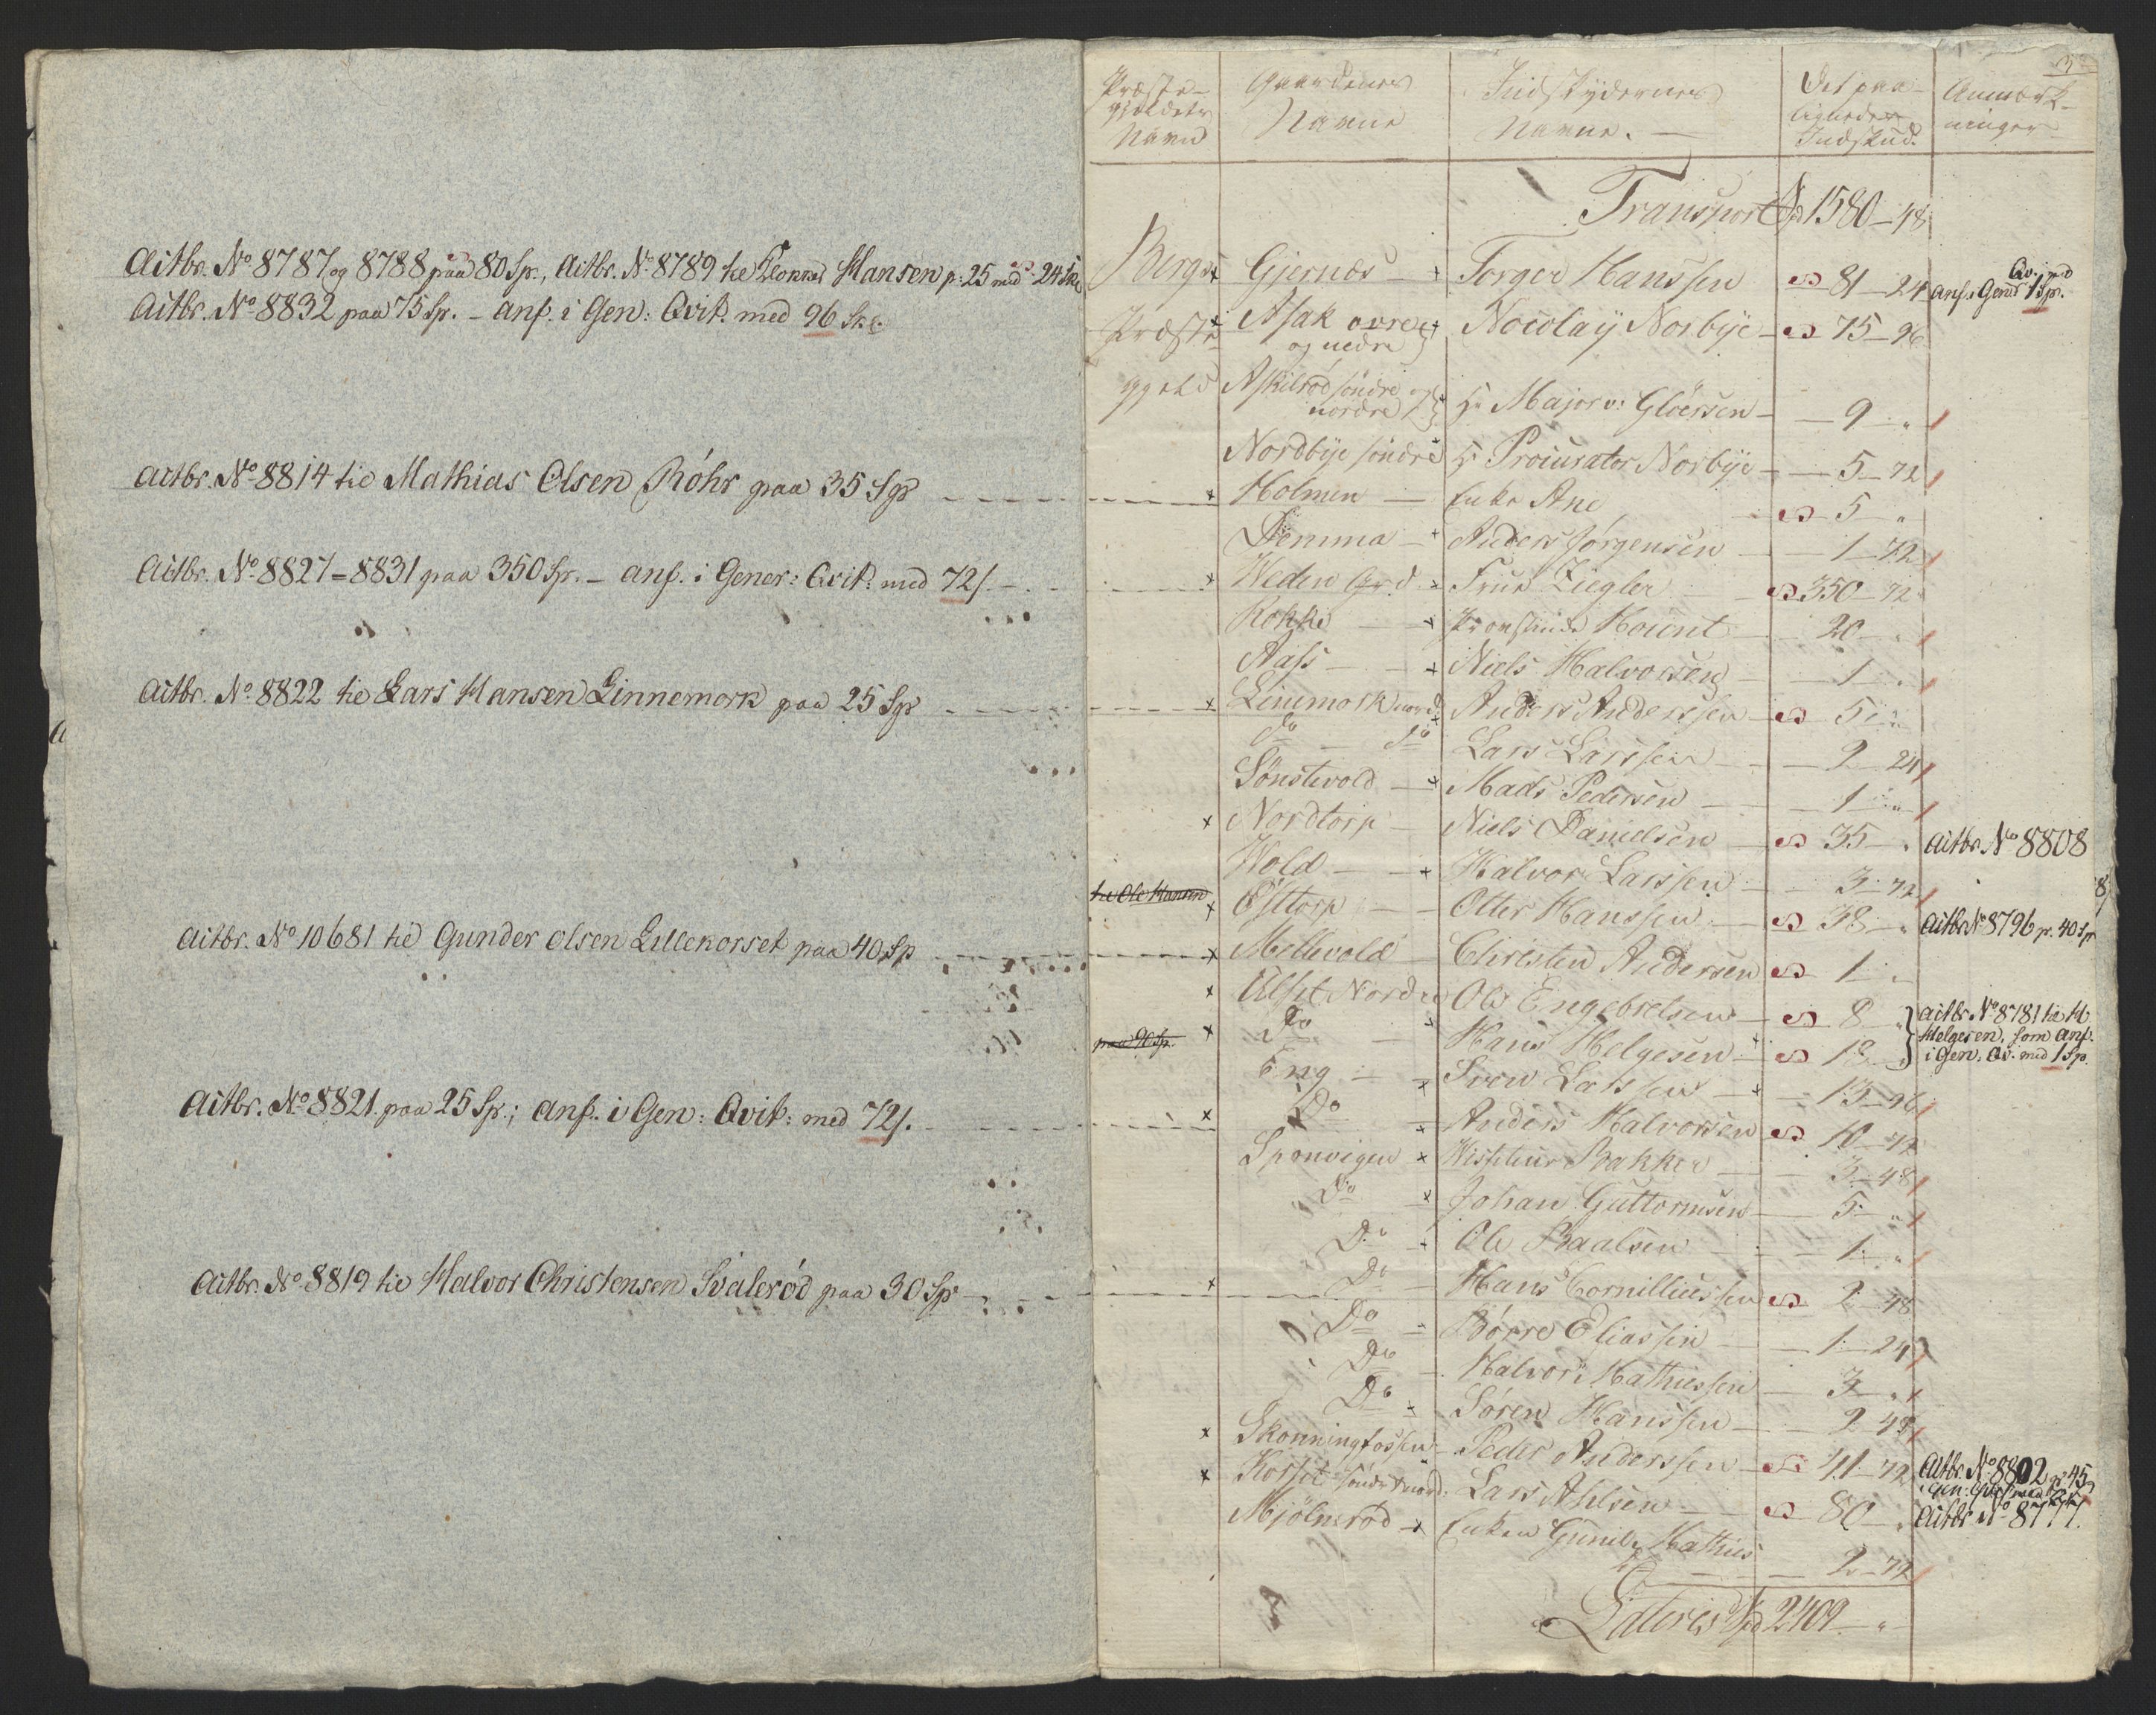 Actbr. No 8787 og 8788 paa 80 Sp., Actbr. No 8789 til Hansen p. 25 med 24 Sk.
Actbr. No 8832 paa 75 Sp. - anf. i Gen: Qvit. med 96 Sk.
Actbr. No 8814 til Mathias Olsen Röhr paa 35 Sp
Actbr. No 8827=8831 paa 350 Sp. - anf. i Gener: Qvit: med 72 s.
Actbr. No 8822 til Lars Hansen Linnemork paa 25 Sp
Actbr. No 10681 til Gunder Olsen Lillekorset paa 40 Sp
Actbr. No 8821 paa 25 Sp.; anf. i Gen: Qvit: med 72 s.
Actbr. No 8819 til Halvor Christensen Svalerød paa 30 Sp
Præste- gjeldets Navn | Gaardenes Navne | Indskydernes Navne. | Det paa- lignede Indskud. | Anmærk- ninger
Transport Spd 1580 - 48
Bergs Gjernæs Torger Hanssen 81 - 24 anf. i Gen: Qv. med 1 Sp.
Præste- Asak øvre og nedre Nicolay Norbye 75 - 96
gjeld Askilrød søndre og nordre Hr Major v: Glöersen 9 "
Nordbye søndre Hr Procurator Norbye 5 - 72
Holmen Enke Ane 5 "
Demma Anders Jørgensen 1 - 72
Weden Grd Frue Ziegler 350 - 72
Rokke Hount 20 "
Aass Niels Halvorsen 1 "
Linnmork nord: Anders Anderssen 5 "
do do Lars Larssen 2 24
Sönstevold Mads Pedersen 1 "
Nordtorp Niels Danielsen 35 " Actbr No 8808
Wold Halvor Larssen 3 - 72
til Ole Hansen Østtorp Otter Hanssen 38 " Actbr No 8796 p. 40 Sp
Mellevold Christen Andersen 1 "
Ulset Nordre Ole Engebretsen 8 " Actbr No 8781 til H.
paa 90 Sp. Do Hans Helgesen 18 Helgesen, som anf. i Gen. Qv. med 1 Sp.
Eng Sven Larssen 13 - 96
Do Anders Halvorsen 10 - 72
Sponvigen Bakker 3 - 48
Do Johan Guttormsen 5 "
Do Ole Paalsen 1 "
Do Hans Cornilliussen 2 - 48
Do Börre Eliassen 1 - 24
Do Halvor Mathiessen 3 "
Do Søren Hanssen 2 48
Skonningfossen Peder Anderssen 41 - 72 Actbr. No 8802 p. 45
Korset sönd: & nord: Lars Ahlsen 80 " Actbr No 8777.
Mjölnerød Enken Gunild Mathies 2 - 72
Lateris Spd 2409 "